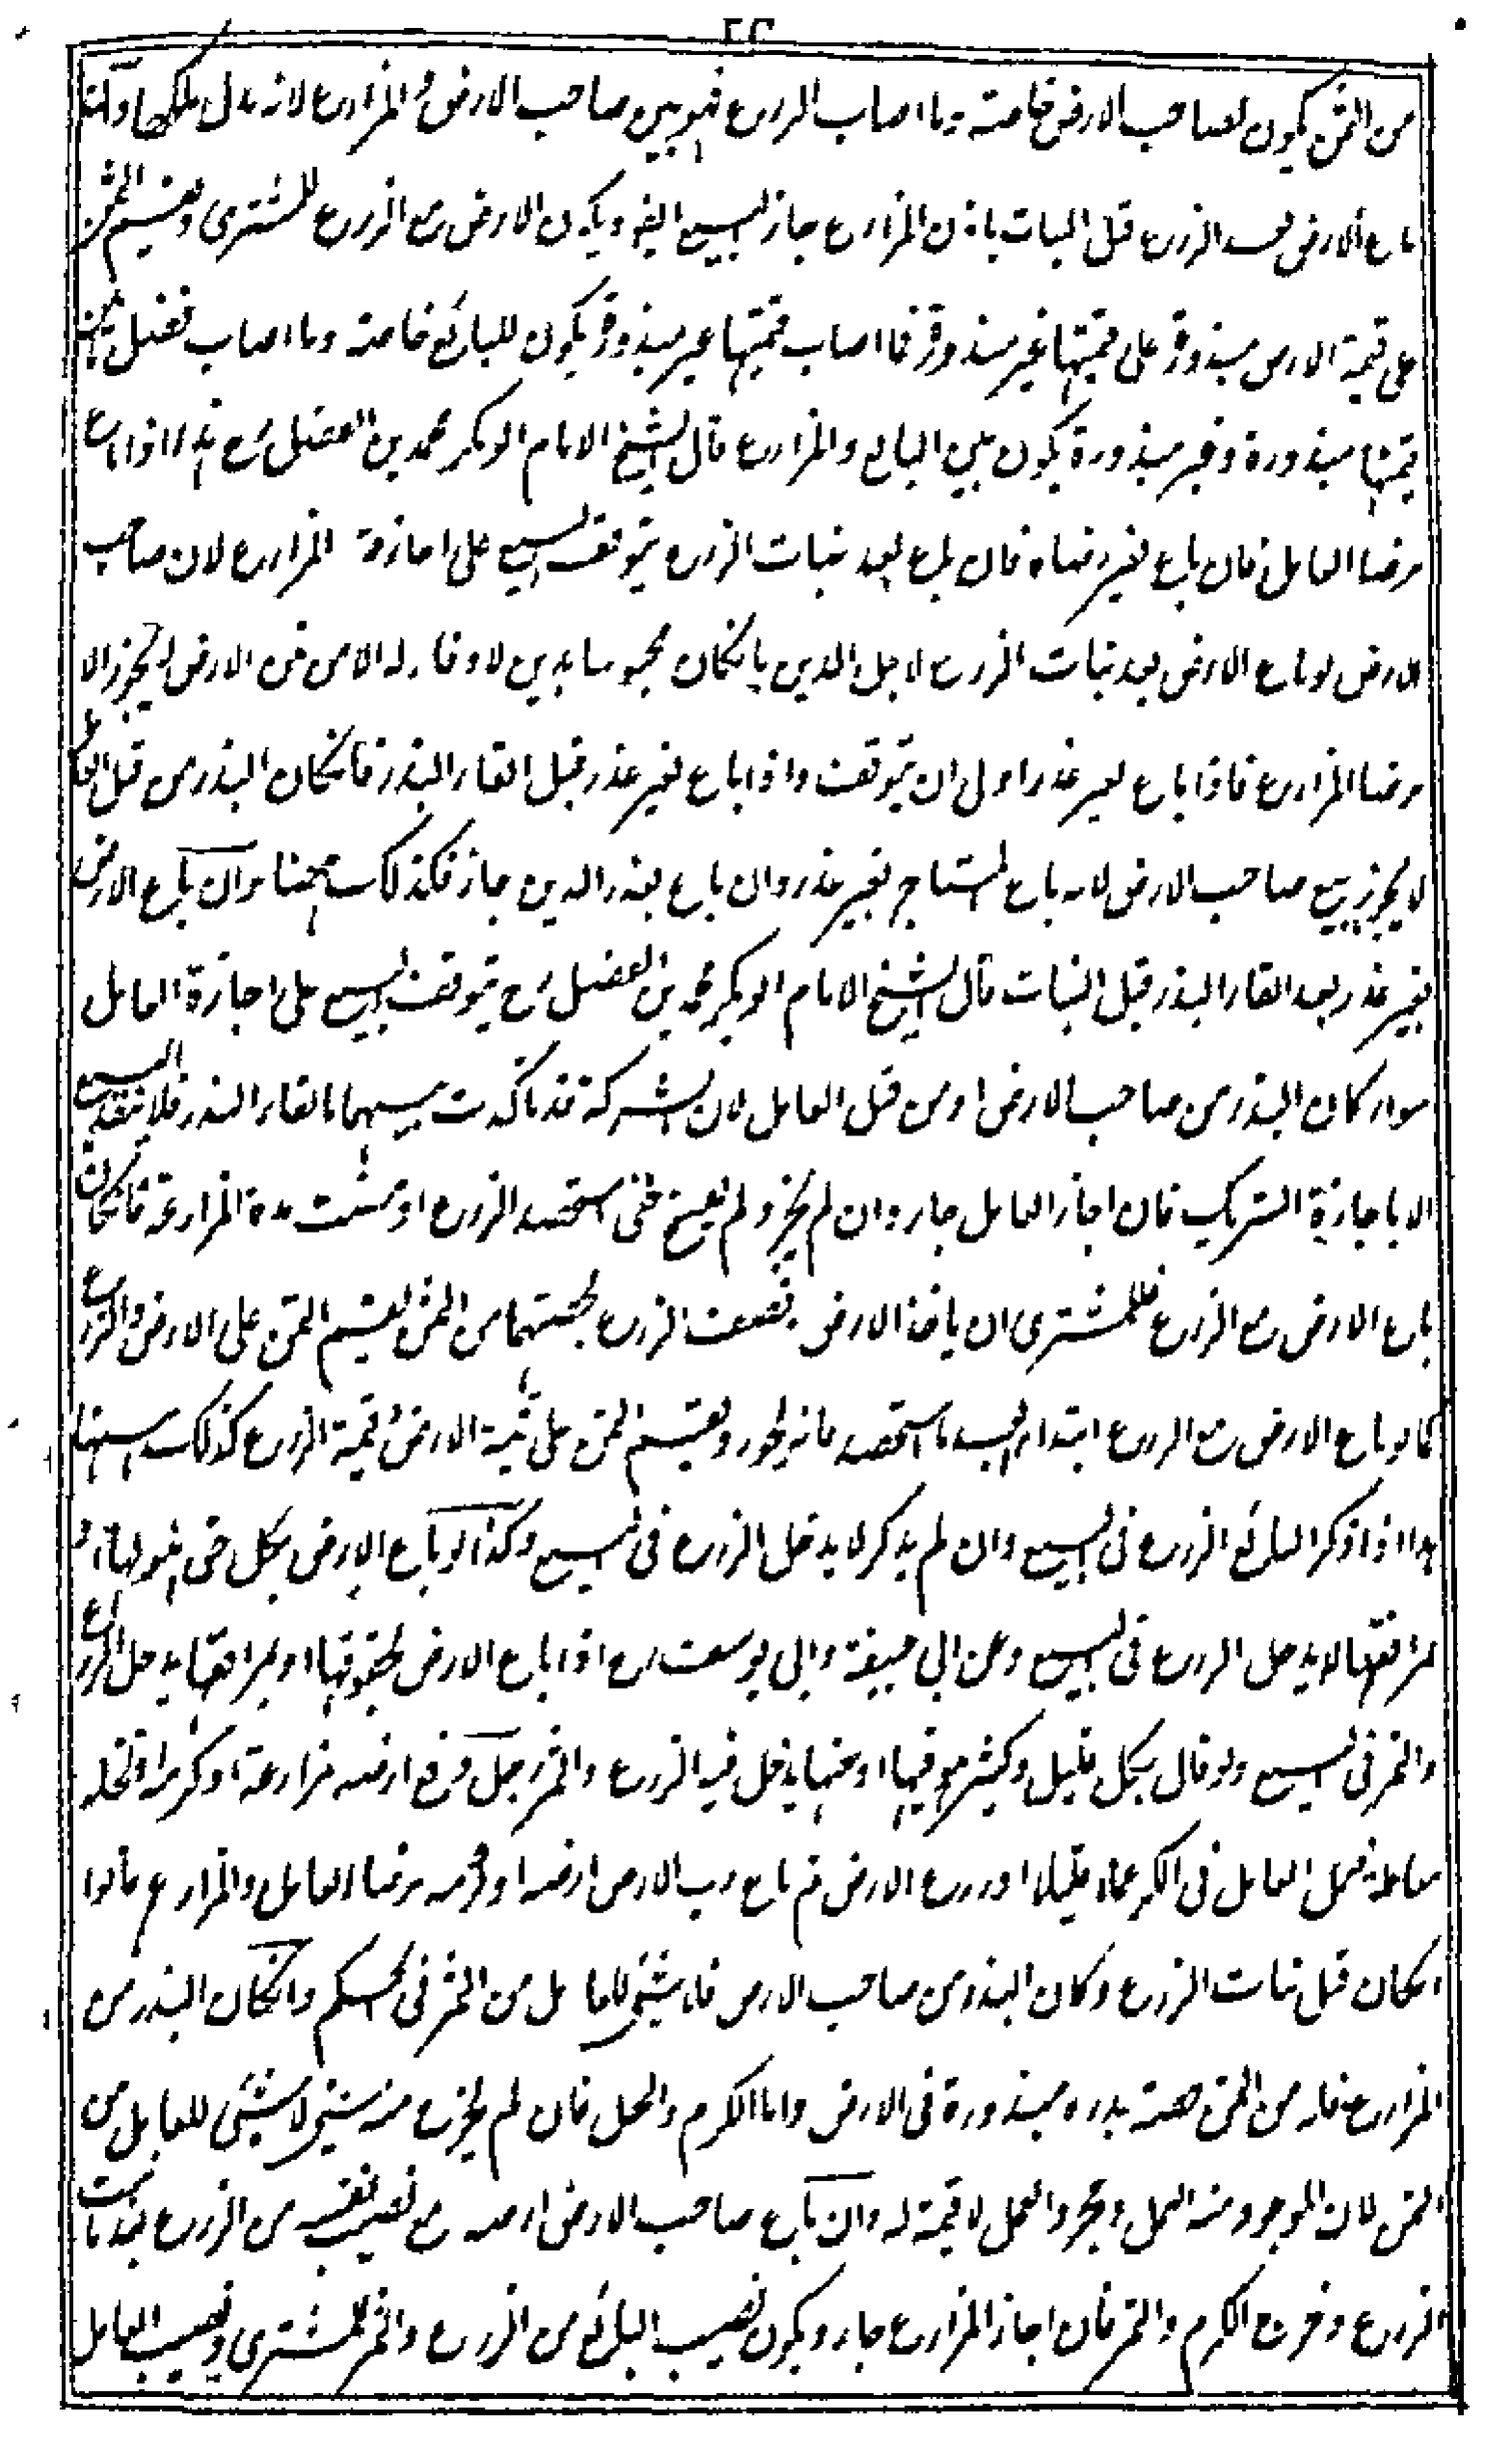 من الثمن يكون لصاحب الارض خاصة وما اصاب الزرع فهو بين صاحب الارض والمزارع لانه بدل ملكهما وان
باع الارض بعد الزرع قبل النبات باذن المزارع جاز البيع ايضا ويكون الارض مع الزرع للمشترى ويقسم الثمن
على قيمة الارض مبذورة وعلى قيمتها غير مبذورة فما اصاب قيمتها غير مبذورة يكون للبائع خاصة وما اصاب فضل ما بين
قيمتها مبذورة وغير مبذورة يكون بين البائع والمزارع قال الشيخ الامام ابو بكر محمد بن الفضل رح هذا اذا باع
برضا العامل فان باع بغير رضاه فان باع بعد نبات الزرع يتوقف البيع على اجازة المزارع لان صاحب
الارض لو باع الارض بعد نبات الزرع لاجل الدين بان كان محبوسا بدين لا وفاء له الا من ثمن الارض لا يجوز الا
برضا المزارع فاذا باع بغير عذر اولى ان يتوقف واذا باع بغير عذر قبل القاء البذر فان كان البذر من قبل العامل
لا يجوز بيع صاحب الارض لانه باع المستاجر بغير عذر وان باع بعذر الدين جاز فكذلك ههنا وان باع الارض
بغير عذر بعد القاء البذر قبل النبات قال الشيخ الامام ابو بكر محمد بن الفضل رح يتوقف البيع على اجازة العامل
سواء كان البذر من صاحب الارض او من قبل العامل لان الشركة قد تاكدت بينهما بالقاء البذر فلا ينفذ البيع
الا باجازة الشريك فان اجاز العامل جاز وان لم يجز ولم يفسخ حتى استحصد الزرع او تمت مدة المزارعة فان كان
باع الارض مع الزرع فللمشترى ان ياخذ الارض ونصف الزرع بحصتهما من الثمن يقسم الثمن على الارض والزرع
كما لو باع الارض مع الزرع ابتداء بعد ما استحصد فانه يجوز ويقسم الثمن على قيمة الارض وقيمة الزرع كذلك ههنا
هذا اذا ذكر البائع الزرع فى البيع وان لم يذكر لا يدخل الزرع فى البيع وكذا لو باع الارض بكل حق هو لها او
بمرافقها لا يدخل الزرع فى البيع وعن ابى حنيفة وابى يوسف رح اذا باع الارض بحقوقها او بمرافقها يدخل الزرع
والثمر فى البيع ولو قال بكل قليل وكثير هو فيها او منها يدخل فيه الزرع والثمر رجل دفع ارضه مزارعة او كرمه او نخله
معاملة فعمل العامل فى الكرم عملا قليلا او زرع الارض ثم باع رب الارض ارضه او كرمه برضا العامل والمزارع قالوا
ان كان قبل نبات الزرع وكان البذر من صاحب الارض فلا شئ للعامل من الثمن فى الحكم وان كان البذر من
المزارع فله من الثمن حصة بذره مبذورة فى الارض واما الكرم والنخل فان لم يخرج منه شئ لا شئ للعامل من
الثمن لان الموجود منه العمل ومجرد العمل لا قيمة له وان باع صاحب الارض ارضه مع نصيب نفسه من الزرع بعد نبات
الزرع وخروج الكرم والثمر فان اجاز المزارع جاز ويكون نصيب البائع من الزرع والثمر للمشترى ونصيب العامل